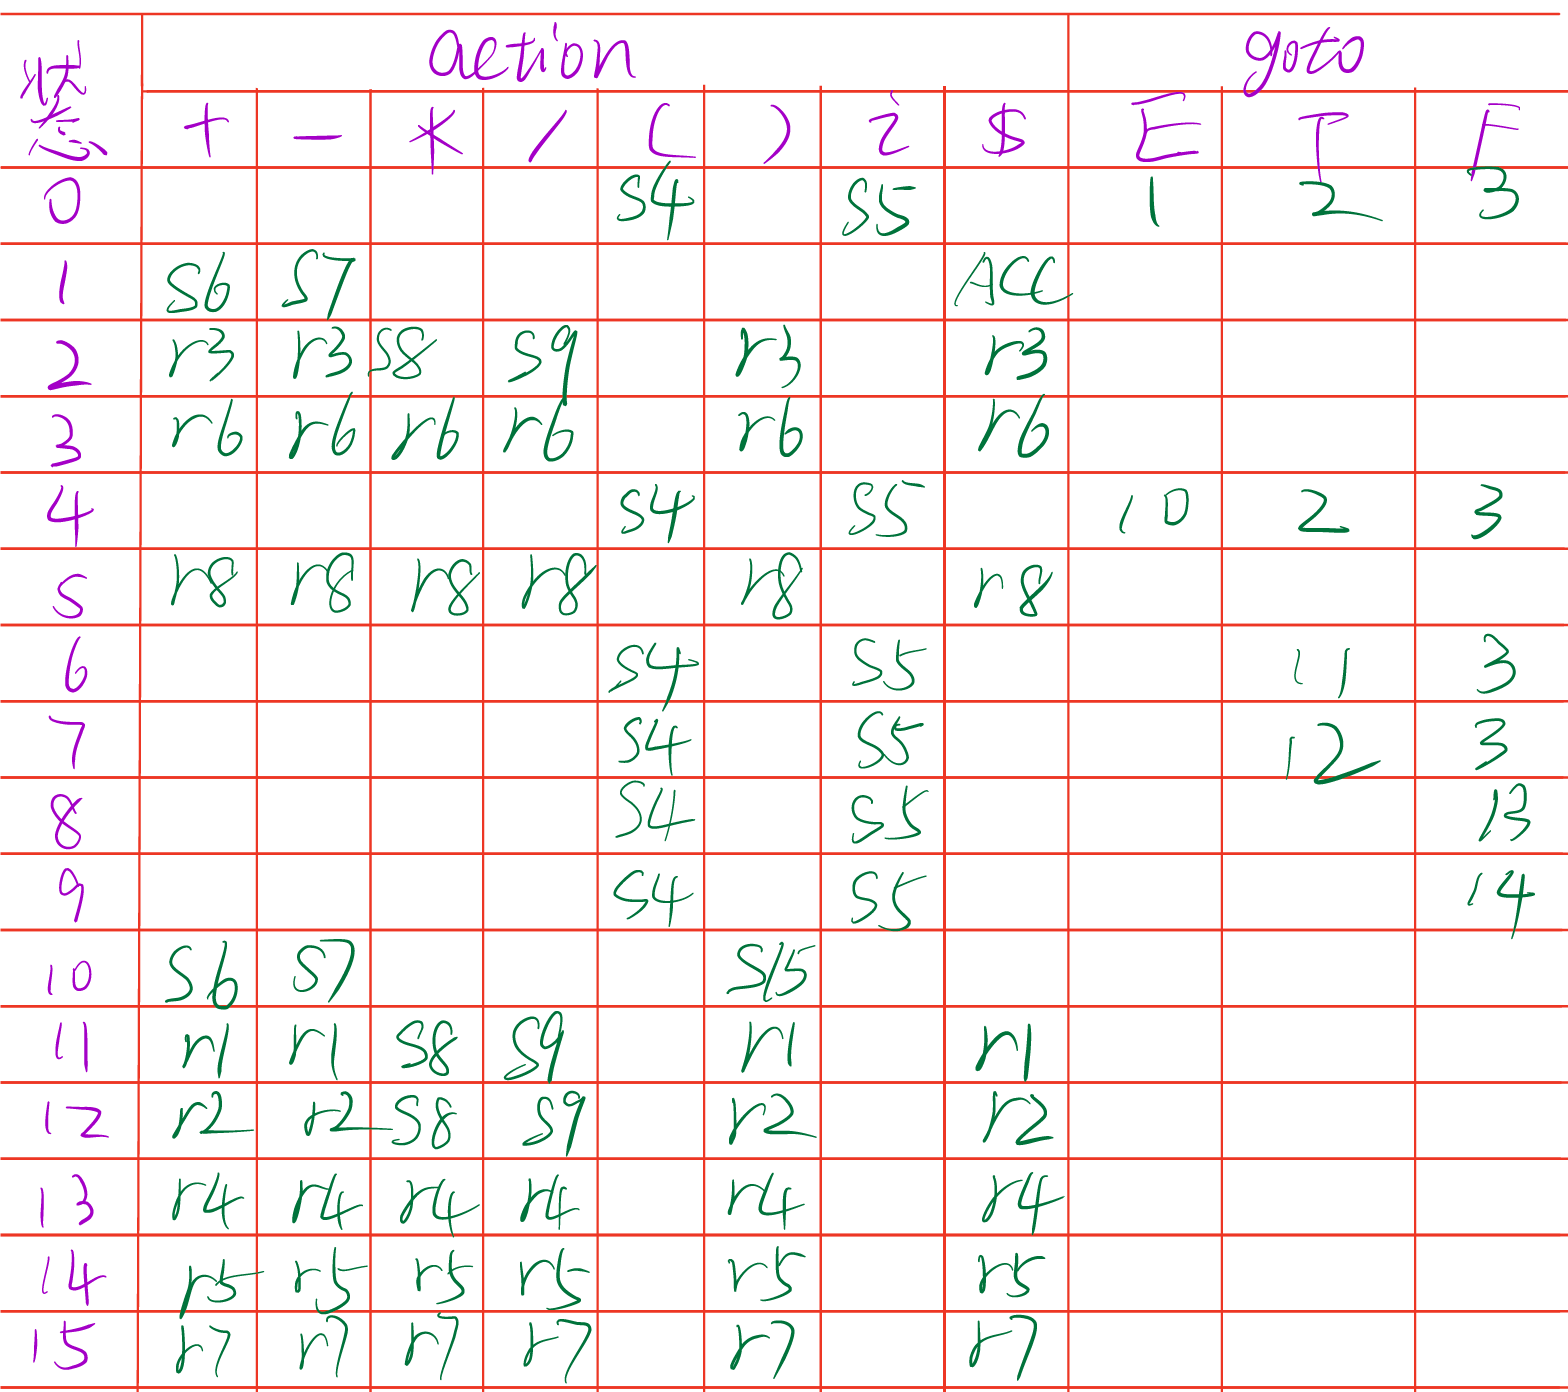 状态 action goto
+ - * / ( ) i $ E T F
0 S4 S5 1 2 3
1 S6 S7 ACC
2 r3 r3 S8 S9 r3 r3
3 r6 r6 r6 r6 r6 r6
4 S4 S5 10 2 3
5 r8 r8 r8 r8 r8 r8
6 S4 S5 11 3
7 S4 S5 12 3
8 S4 S5 13
9 S4 S5 14
10 S6 S7 S15
11 r1 r1 S8 S9 r1 r1
12 r2 r2 S8 S9 r2 r2
13 r4 r4 r4 r4 r4 r4
14 r5 r5 r5 r5 r5 r5
15 r7 r7 r7 r7 r7 r7